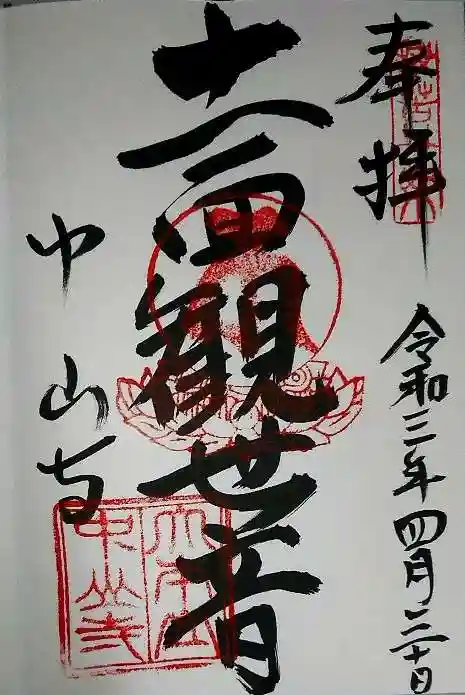 奉拝
令和三年四月三十日
十一面観世音
中山寺
中山寺